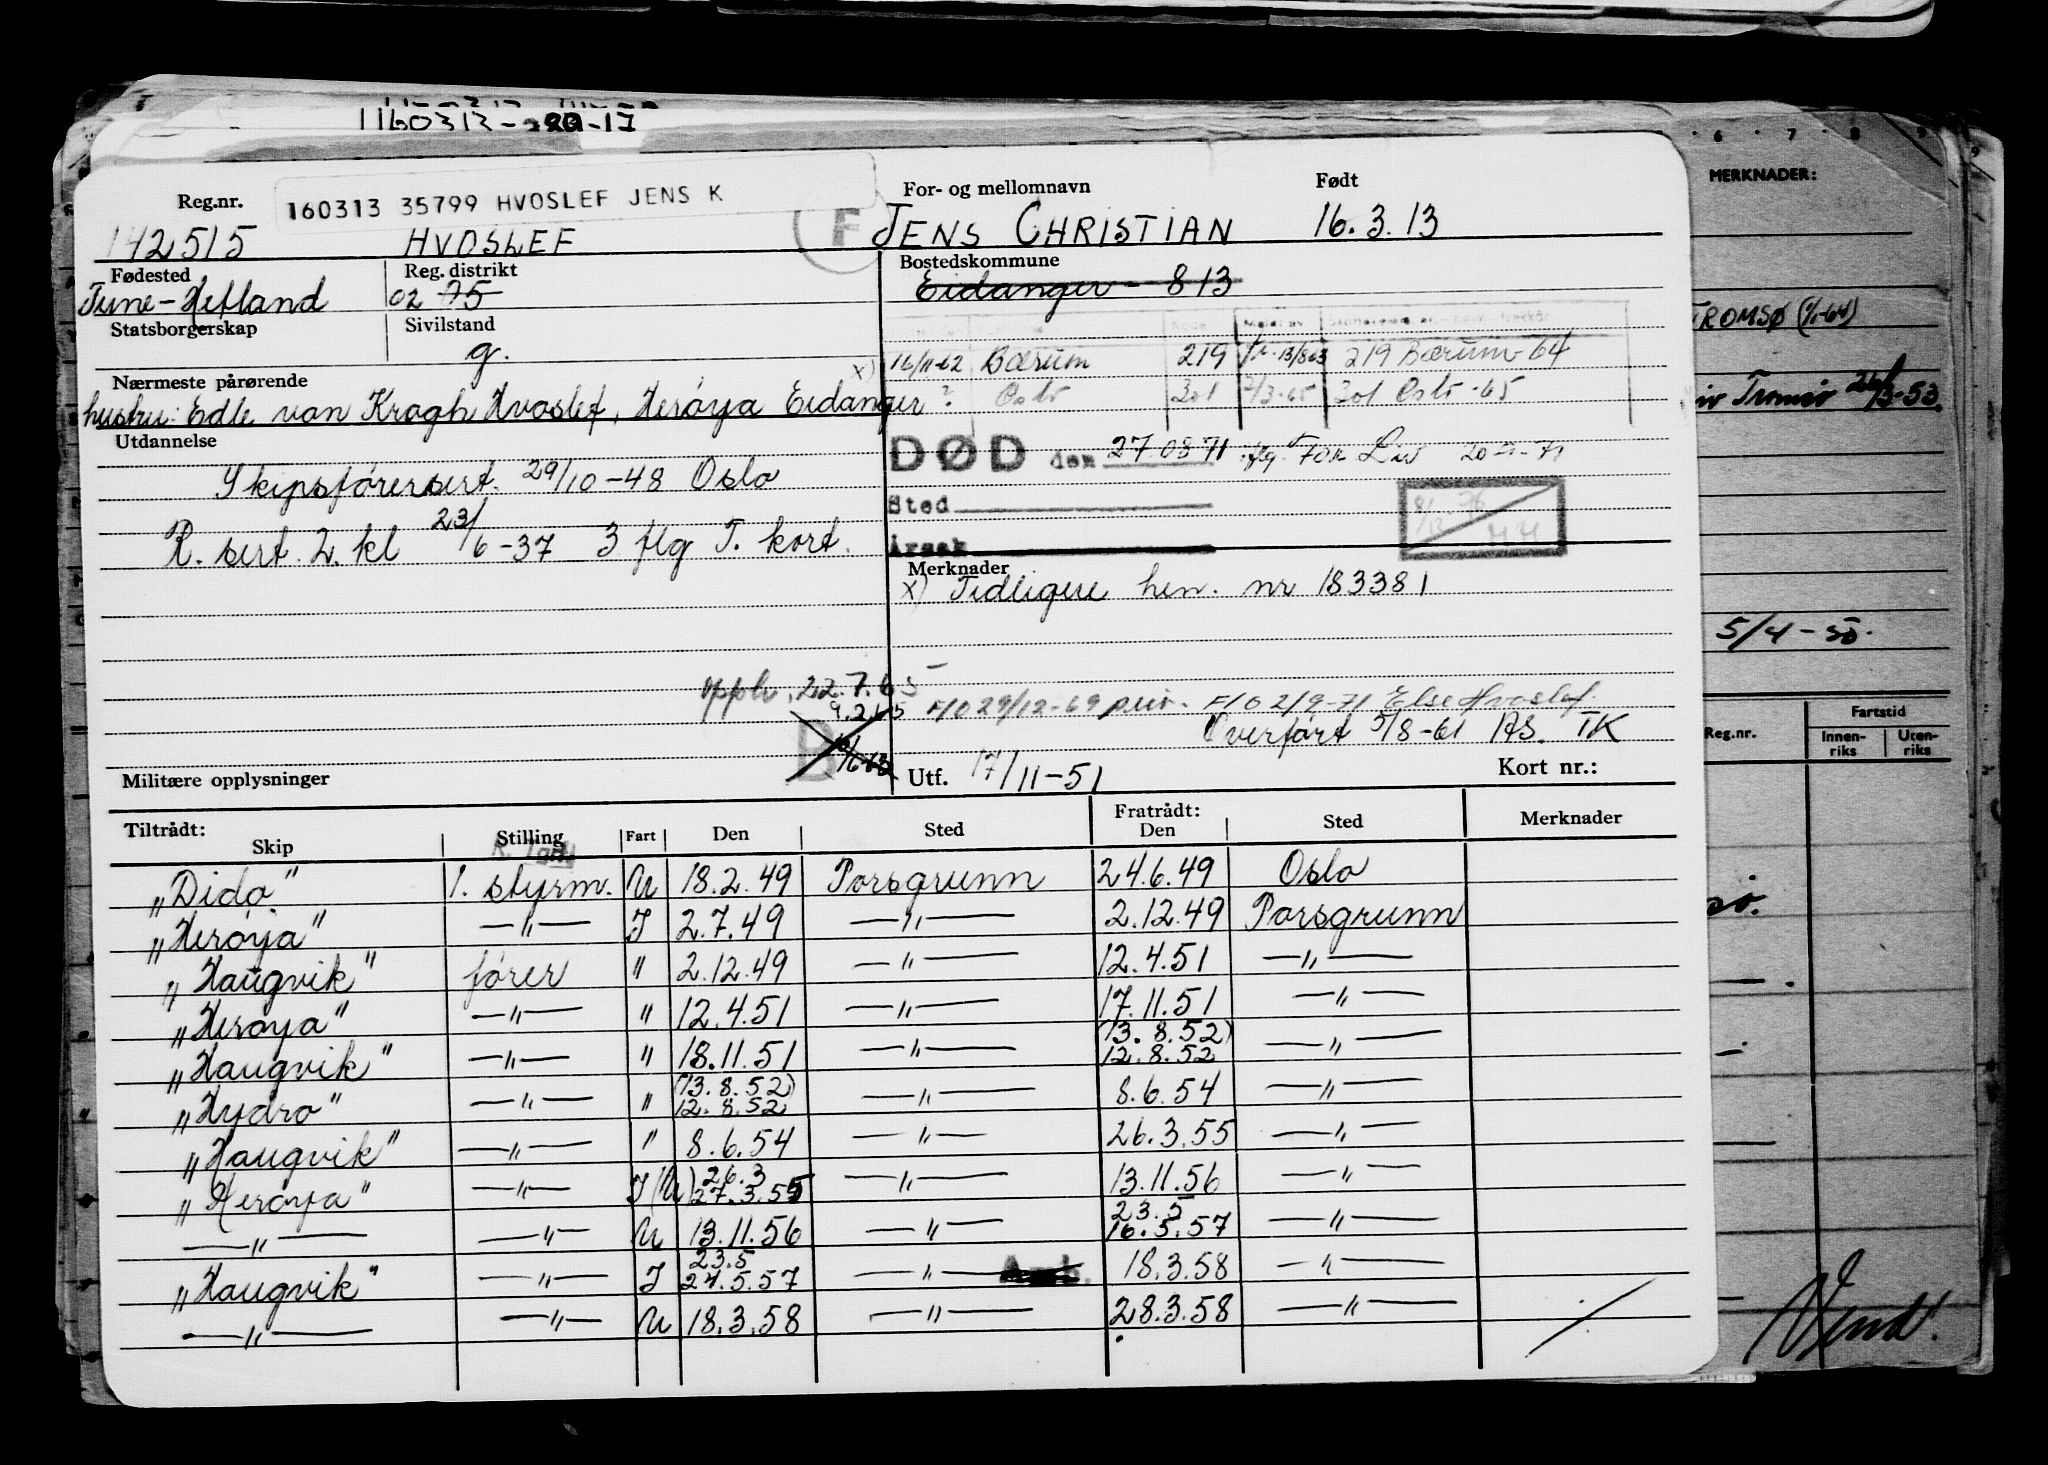 Reg.nr.
160313 35799 HVOSLEF JENS K
F
For- og mellomnavn
Født
142515
HVOSLEF
JENS CHRISTIAN
16.3.13
Fødested
Reg. distrikt
Bostedskommune
Tune-
02 05
Eidanger - 813
Statsborgerskap
Sivilstand
g.
x) 16/11-62 Bærum 219 13/8 63 219 Bærum-64
Nærmeste pårørende
? Oslo 301 2/3-65 301 Oslo -65
hustru: Edle van Kragh Hvoslef, Herøya Eidanger
Utdannelse
DØD den 27 08 71 flg. For Liv
Skipsførersert. 29/10-48 Oslo
Sted
R. sert. 2. kl 23/6-37 3 flg T. kort.
Årsak
Merknader
x) Tidligere hen. nr 183381
22.7.65
9.2.65
F/O 29/12-69 priv. F/O 2/9-71 Else Hvoslef.
Overført 5/8-61 AS. TK
B
Militære opplysninger
Utf. 17/11-51
Kort nr.:
Tiltrådt:
Fratrådt:
Skip Stilling Fart Den Sted Den Sted Merknader
„Dido" 1. styrm. U 18.2.49 Porsgrunn 24.6.49 Oslo
„Herøya" —„— I 2.7.49 —„— 2.12.49 Porsgrunn
„Haugvik" fører " 2.12.49 —„— 12.4.51 —„—
„Herøya" —„— " 12.4.51 —„— 17.11.51 —„—
„Haugvik" —„— " 18.11.51 —„— (13.8.52) 12.8.52 —„—
„Hydro" —„— " (13.8.52) 12.8.52 —„— 8.6.54 —„—
„Haugvik" —„— " 8.6.54 —„— 26.3.55 —„—
„Herøya" —„— I (U) 26.3 27.3.55 —„— 13.11.56 —„—
—„— —„— U 13.11.56 —„— 23.5 16.5.57 —„—
„Haugvik" —„— I 23.5 24.5.57 —„— 18.3.58 —„—
—„— —„— U 18.3.58 —„— 28.3.58 —„—
6 7 8 9
MERKNADER:
5/4-50.
Reg.nr.
Fartstid
Innen-
riks
Uten-
riks
Vend!